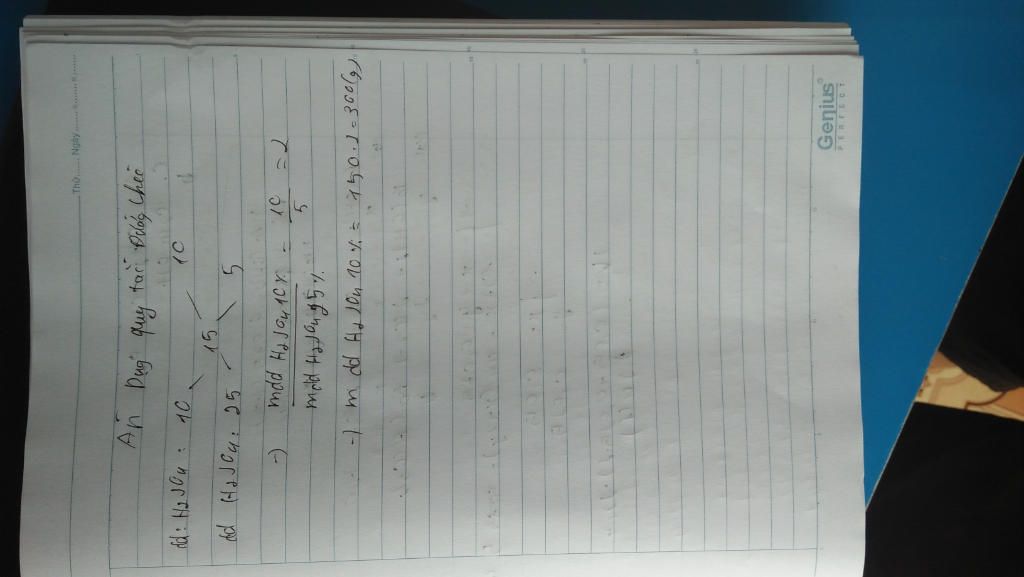 Thứ ...... Ngày .................
Áp Dụng quy tắc Đường chéo
dd: H2SO4 : 10 10
15
dd H2SO4 : 25 5
-) mdd H2SO4 10% = 10 = 2
mdd H2SO4 25% 5
-) m dd H2SO4 10% = 150.2 = 300(g)
Genius
PERFECT